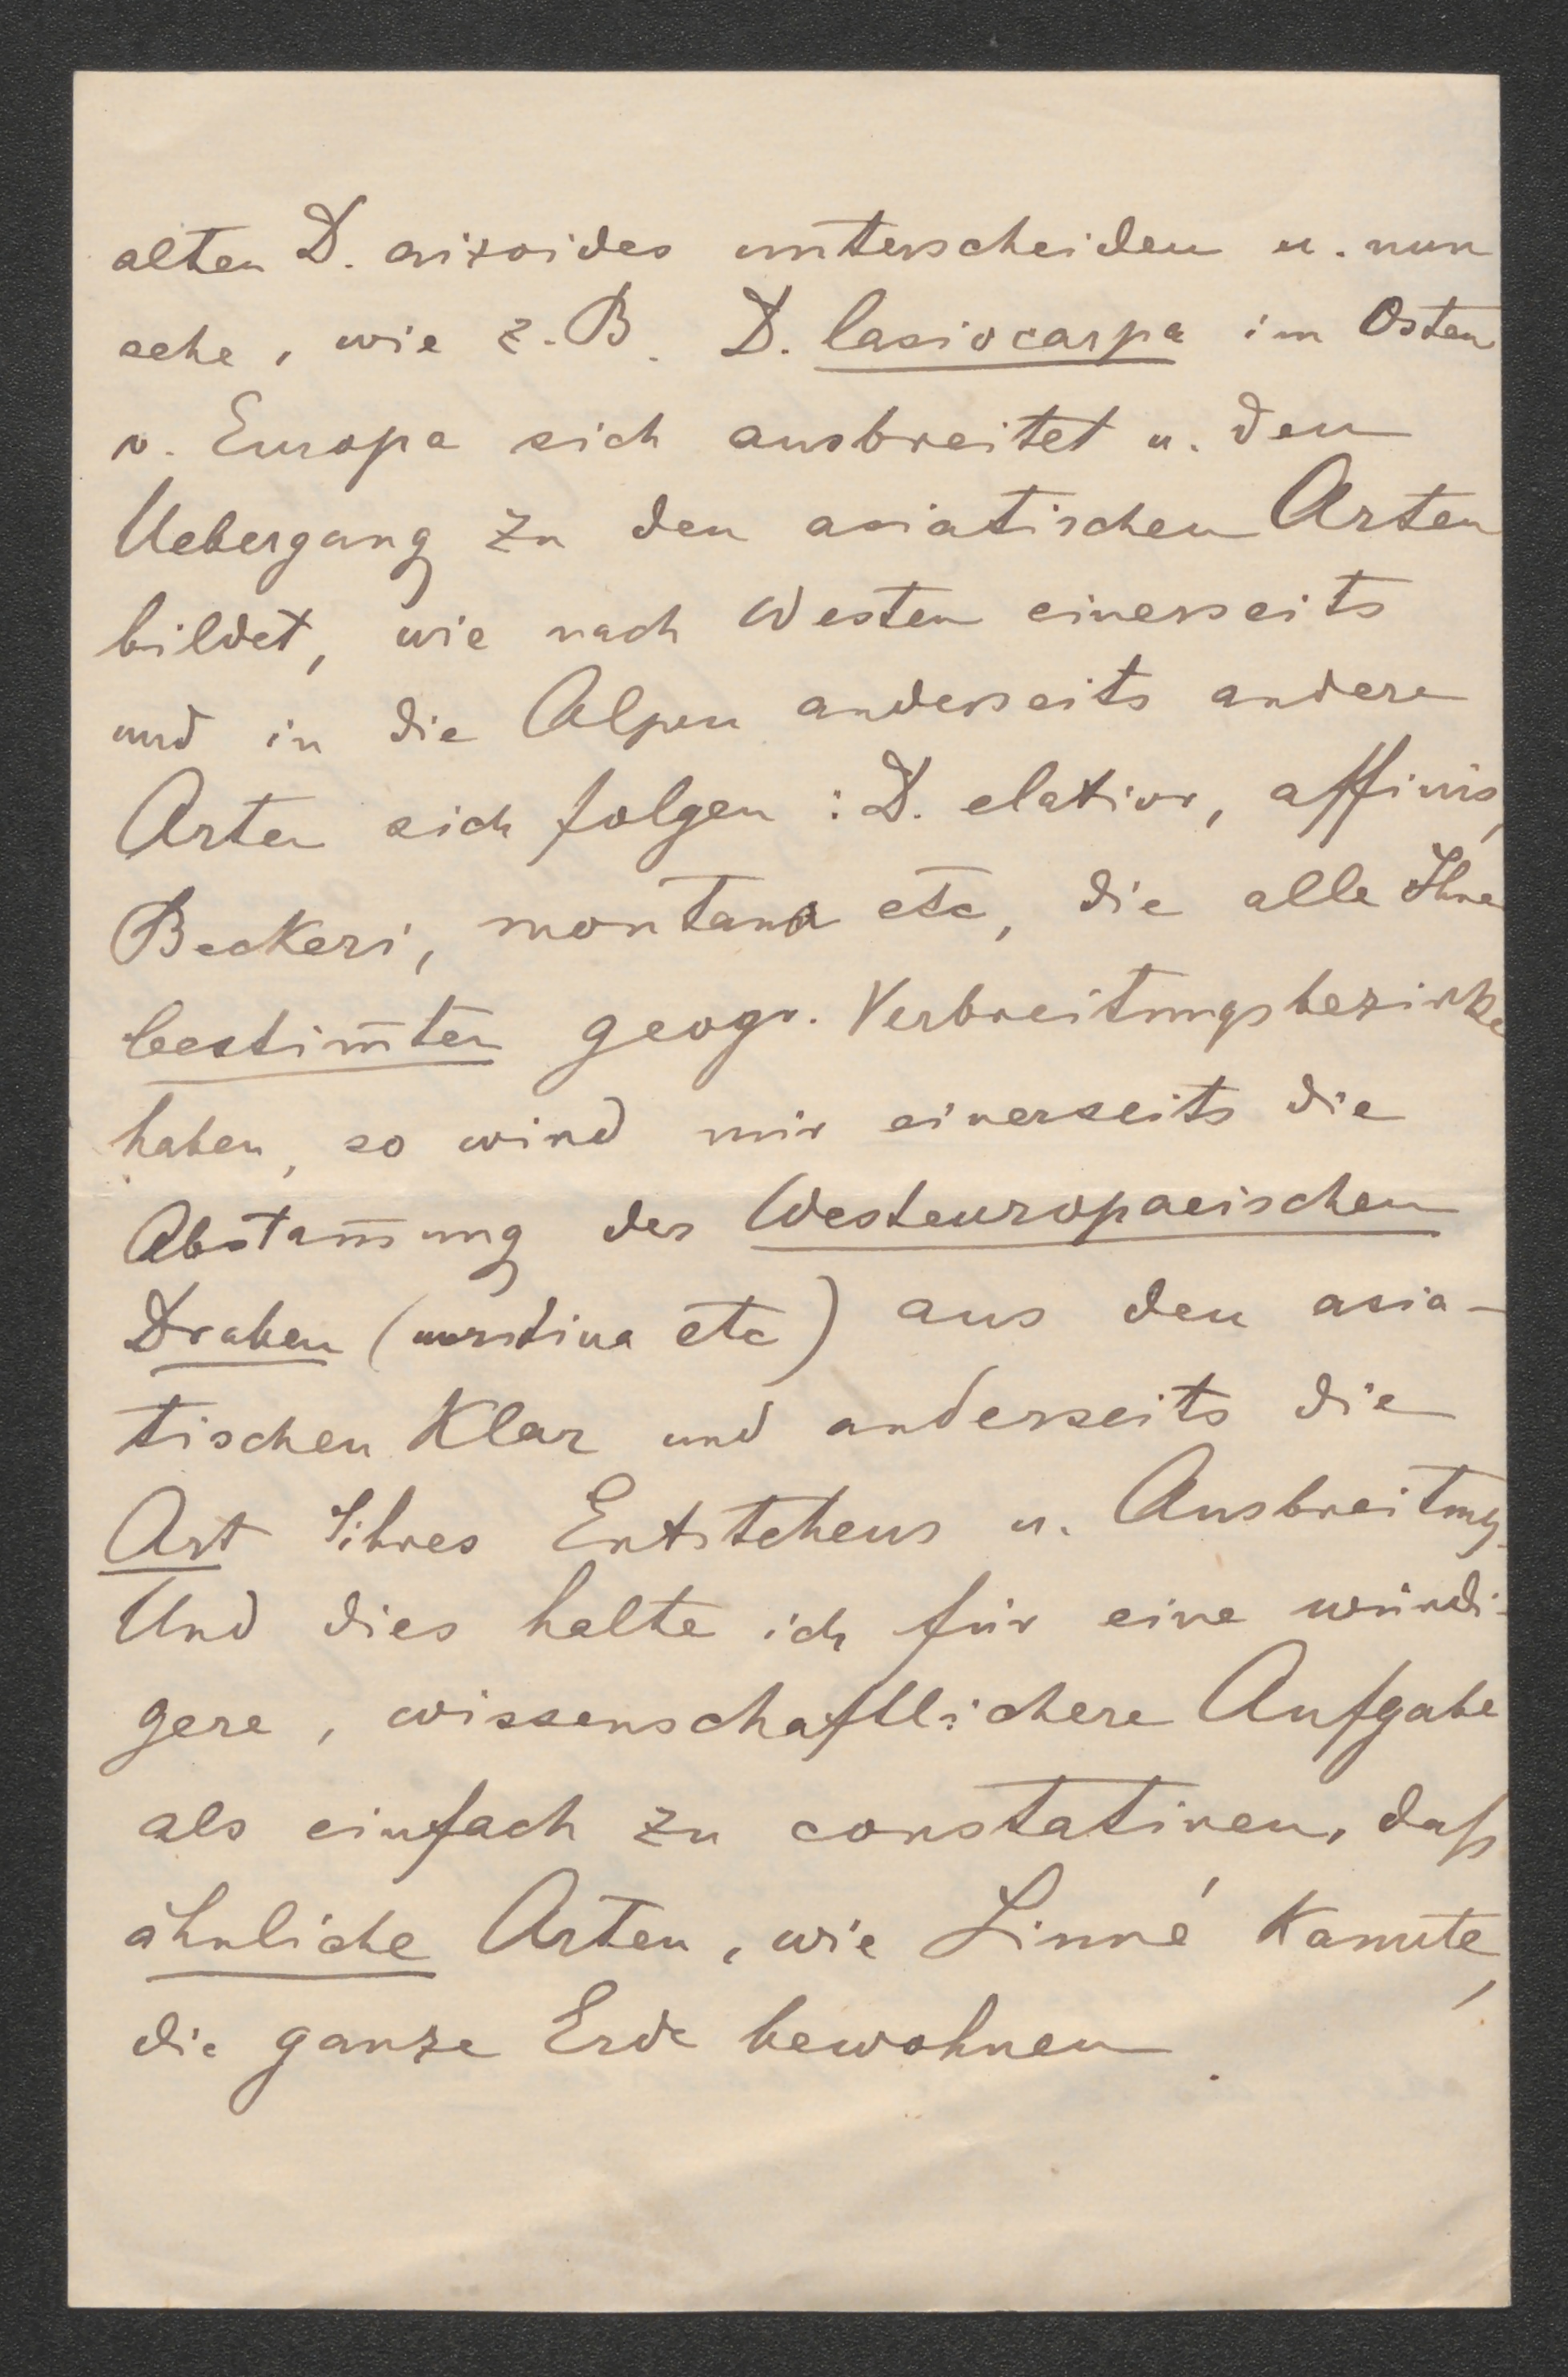 alten D. aizoides unterscheiden u. nun
sehe, wie z. B. D. lasiocarpa im Osten
v. Europa sich ausbreitet u. den
Uebergang zu den asiatischen Arten
bildet, wie nach Westen einerseits
und in die Alpen anderseits andere
Arten sich folgen: D. elatior, affinis,
Beckeri, montana etc, die alle Ihre
bestim̅ten geogr. Verbreitungsbezirke
haben, so wird mir einerseits die
Abstam̅ung der Westeuropaeischen
Draben ( etc) aus den asia-
tischen Klar und anderseits die
Art Ihres Entstehens u. Ausbreitung.
Und dies halte ich für eine würdi-
gere, wissenschaftlichere Aufgabe
als einfach zu constatiren, daß
ähnliche Arten, wie Linné Kannte,
die ganze Erde bewohnen.